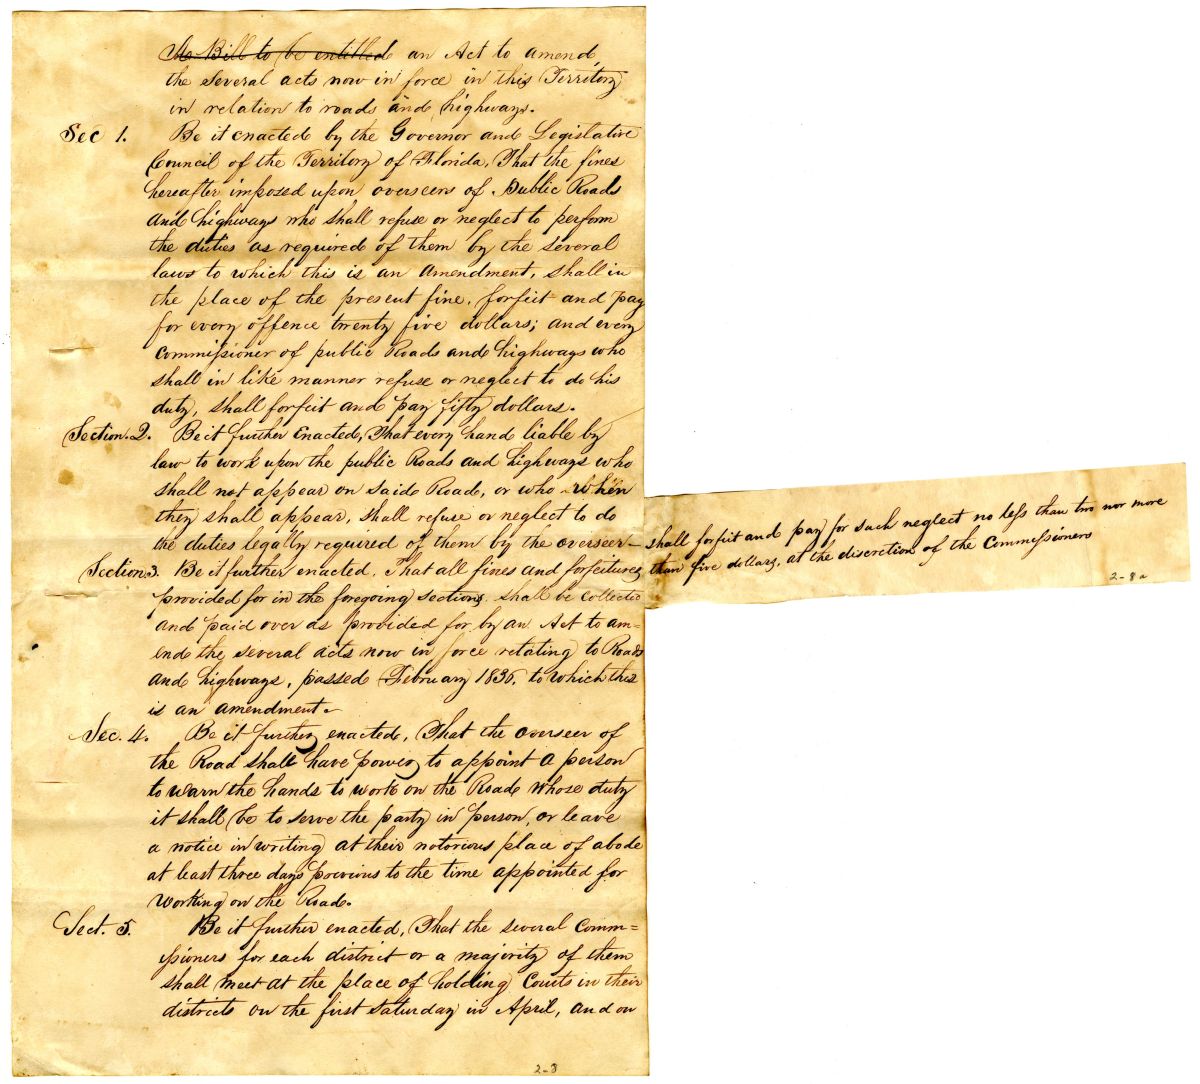 A Bill to be entitled an Act to amend,
the several acts now in force in this Territory
in relation to roads and highways.
Sec 1. Be it enacted by the Governor and Legislative
Council of the Territory of Florida, That the fines
hereafter imposed upon overseers of Public Roads
and highways who shall refuse or neglect to perform
the duties as required of them by the several
laws to which this is an amendment, shall in
the place of the present fine, forfeit and pay
for every offence twenty five dollars; and every
commissioner of public Roads and highways who
shall in like manner refuse or neglect to do his
duty, shall forfeit and pay fifty dollars.
Section. 2. Be it further Enacted, That every hand liable by
law to work upon the public Roads and highways who
shall not appear on said Road, or who when
they shall appear, shall refuse or neglect to do
the duties legally required of them by the overseer—
shall forfeit and pay for such neglect no less than two nor more
than five dollars, at the discretion of the Commissioners
2-8a
Section 3. Be it further enacted. That all fines and forfeitures
provided for in the foregoing sections shall be collected
and paid over as provided for by an Act to am=
end the several acts now in force retating to Roads
and highways, passed February 1836, to which this
is an amendment.
Sec. 4. Be it further enacted, That the overseer of
the Road shall have power to appoint a person
to warn the hands to work on the Road whose duty
it shall be to serve the party in person, or leave
a notice in writing at their notorious place of abode
at least three days previous to the time appointed for
working on the Road.
Sect. 5. Be it further enacted, That the several Comm=
issioners for each district or a majority of them
shall meet at the place of holding Courts in their
districts on the first Saturday in April, and on
2-8